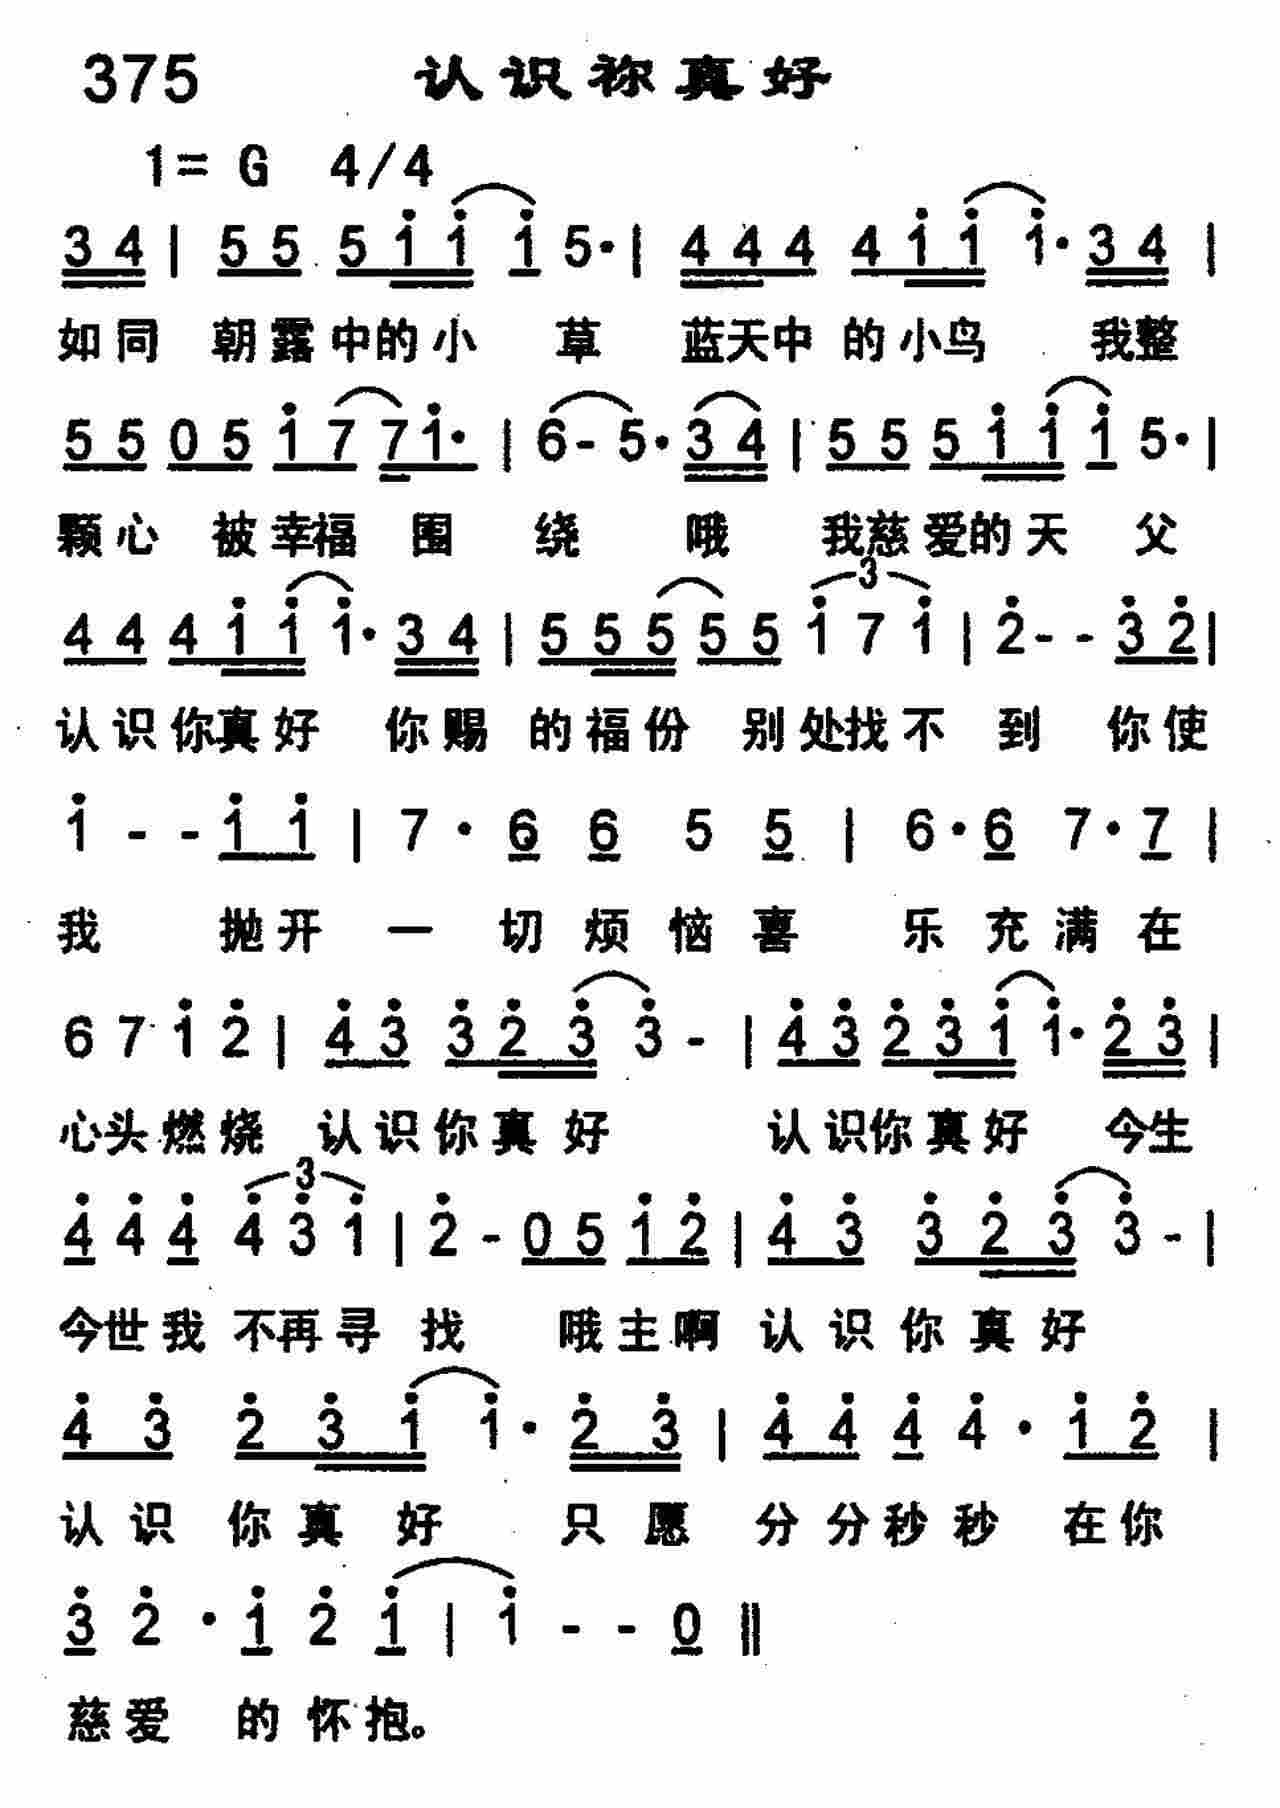 375 认识祢真好
1= G 4/4
3 4 | 5 5 5 1̇ 1̇ 1̇ 5· | 4 4 4 4 1̇ 1̇ 1̇· 3 4 |
如同 朝露中的小 草 蓝天中 的小鸟 我整
5 5 0 5 1̇ 7 7 1̇· | 6 - 5· 3 4 | 5 5 5 1̇ 1̇ 1̇ 5· |
颗心 被幸福 围 绕 哦 我慈爱的天 父
4 4 4 1̇ 1̇ 1̇· 3 4 | 5 5 5 5 5 3 1̇ 7 1̇ | 2̇ - - 3̇ 2̇ |
认识你真好 你赐 的福份 别处找不 到 你使
1̇ - - 1̇ 1̇ | 7 · 6 6 5 5 | 6 · 6 7 · 7 |
我 抛开 一 切 烦 恼 喜 乐 充 满 在
6 7 1̇ 2̇ | 4̇ 3̇ 3̇ 2̇ 3̇ 3̇ - | 4̇ 3̇ 2̇ 3̇ 1̇ 1̇· 2̇ 3̇ |
心头燃烧 认识你真 好 认识你真好 今生
4̇ 4̇ 4̇ 3 4̇ 3̇ 1̇ | 2̇ - 0 5 1̇ 2̇ | 4̇ 3̇ 3̇ 2̇ 3̇ 3̇ - |
今世我 不再寻 找 哦主啊 认 识 你 真 好
4̇ 3̇ 2̇ 3̇ 1̇ 1̇ · 2̇ 3̇ | 4̇ 4̇ 4̇ 4̇ · 1̇ 2̇ |
认 识 你 真 好 只 愿 分 分秒秒 在你
3̇ 2̇ · 1̇ 2̇ 1̇ | 1̇ - - 0 ‖
慈爱 的 怀 抱。